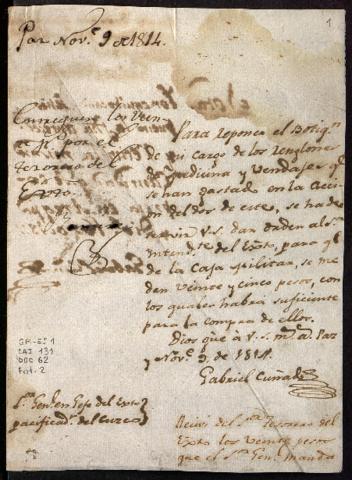 1
Paz Nov.e 9 de 1814.
Entreguense los Vein
te p.s por el
Tesorero del
Exto.
Para reponer el Botiq.n
de mi cargo de los renglones
de Medicina y Vendajes q.e
se han gastado en la Accion
del dos de este, se ha de
servir V.S. dar orden al S.r
Intend.te del Exto, para q.e
de la Caja Militar, se me
den Veinte y cinco pesos, con
los quales habrá suficiente
para la compra de ellos.
Dios gue à V.S. m.s a.s Paz
y Nov.e 9. de 1814.
Gabriel Cuñado
S.or Gen.l en Gefe del Exto
pacificad.r del Cuzco
GR-EJ 1
CAJ 131
DOC 62
Fol. 2
Recivi del S.or Tesorero del
Exto los veinte pesos
que el S.or Gen.l manda